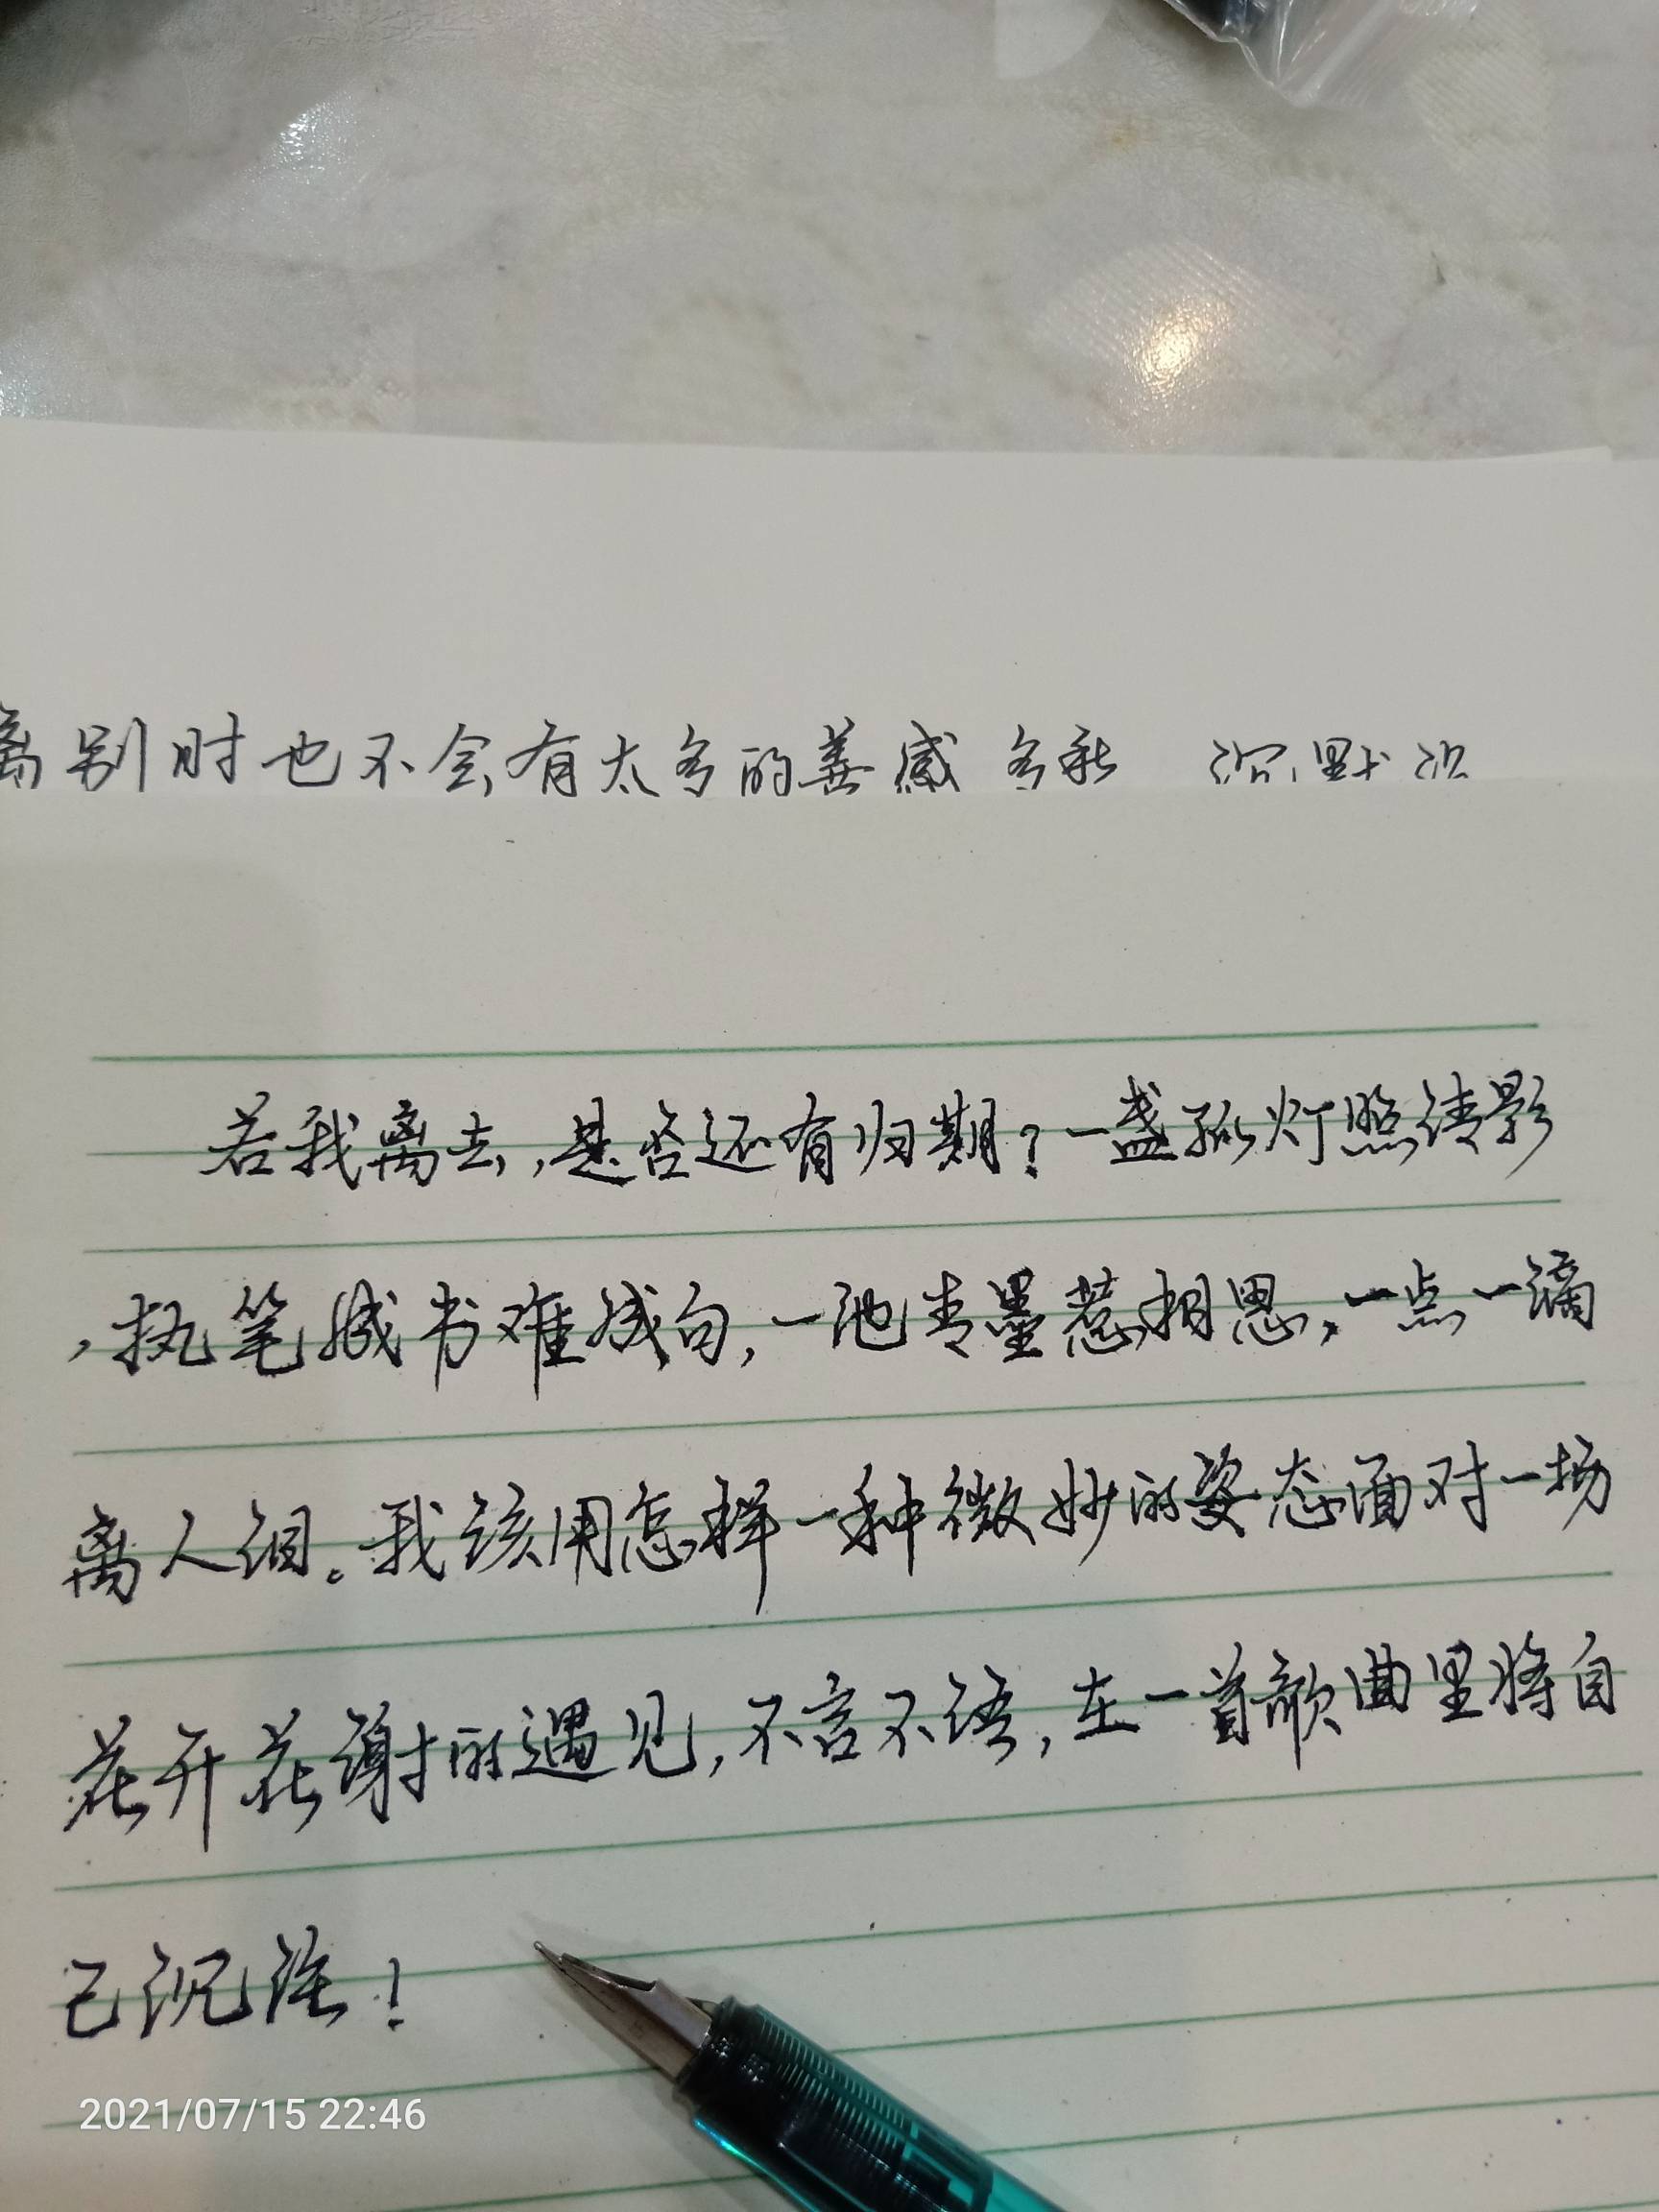 离别时也不会有太多的善感 多愁 沉默沉
若我离去,是否还有归期?一盏孤灯照清影
,执笔成书难成句,一池青墨惹相思,一点一滴
离人泪。我该用怎样一种微妙的姿态面对一场
花开花谢的遇见,不言不语,在一首歌曲里将自
己沉沦!
2021/07/15 22:46